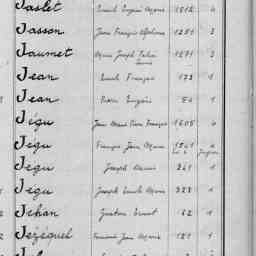 Jaslet Emile Eugène Marie 1512 4
Jasson Jean François Alphonse 1251 3
Jaumet Marie Joseph 1271 3
Jean Emile François 173 1
Jean Pierre Eugène 84 1
Jégu Jean Marie Pierre François 1605 4
Jégu François Jean Marie 1541 4
Jégu Joseph Marie 241 1
Jégu Joseph Emile Marie 323 1
Jéhan Gustave Ernest 62 1
Jézéquel Jean Marie 121 1